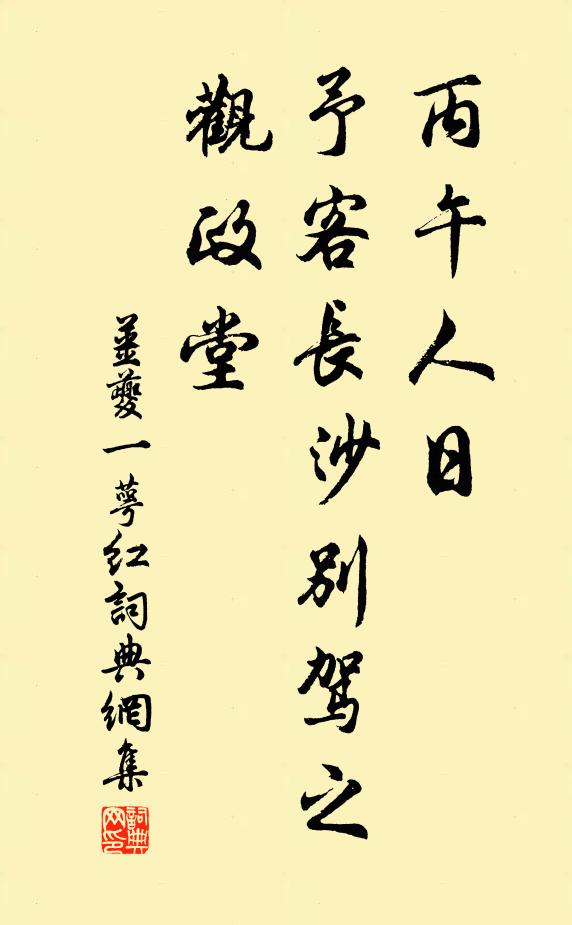 丙午人日
予客長沙別駕之
觀政堂
姜夔一萼紅詞典網集
詞典網印